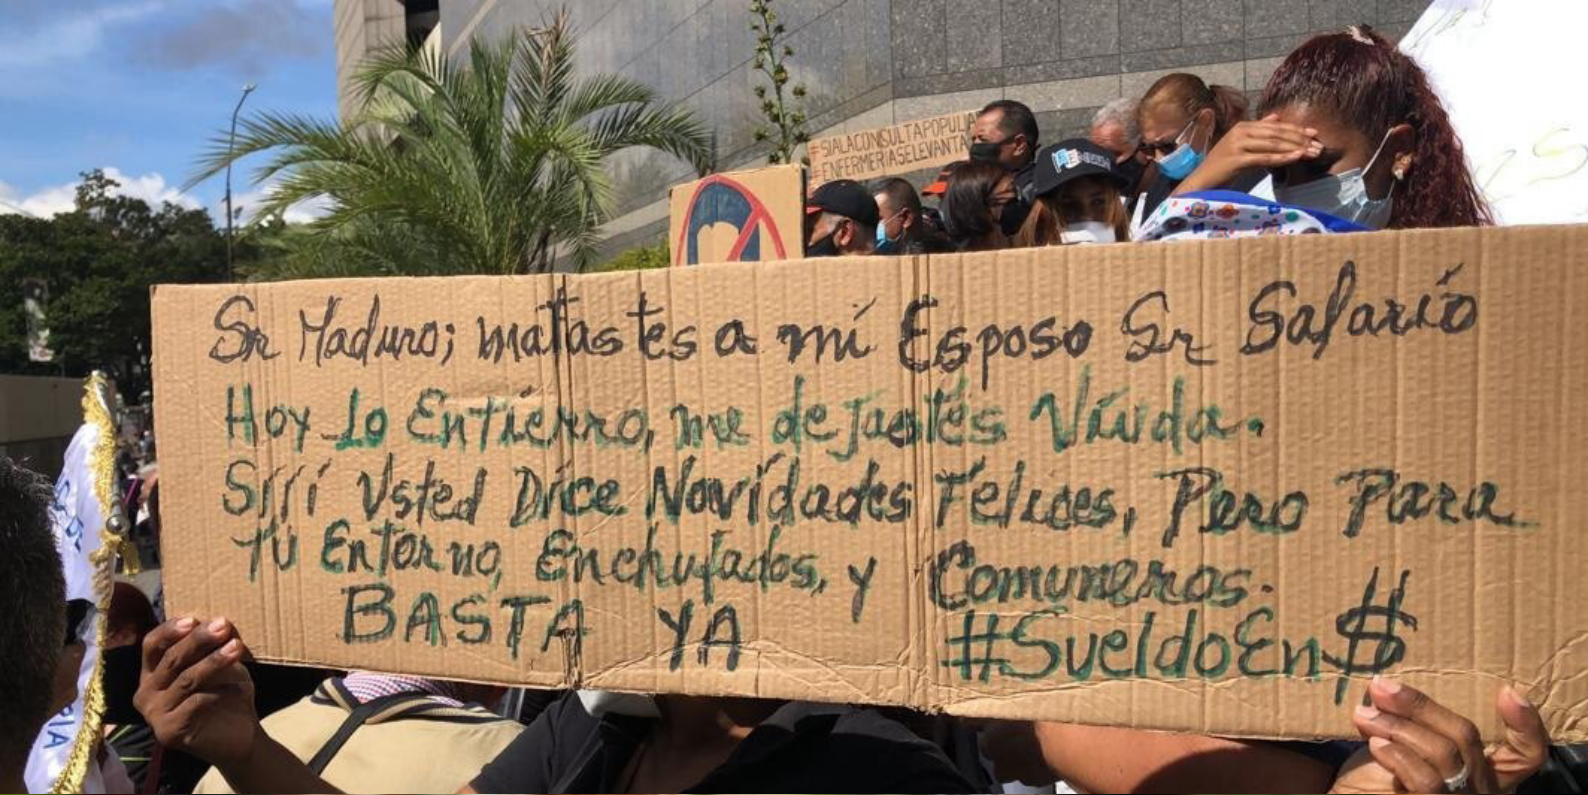 #SIALACONSULTAPOPULA
#ENFERMERIASELEVANTA
Sr Maduro; matastes a mí Esposo Sr Salarío
Hoy Lo Entíerro, me dejastes Víuda.
Sííí Usted Díce Navídades Felices, Pero Para
TU Entorno, Enchufados, y Comuneros.
BASTA YA #SueldoEn$